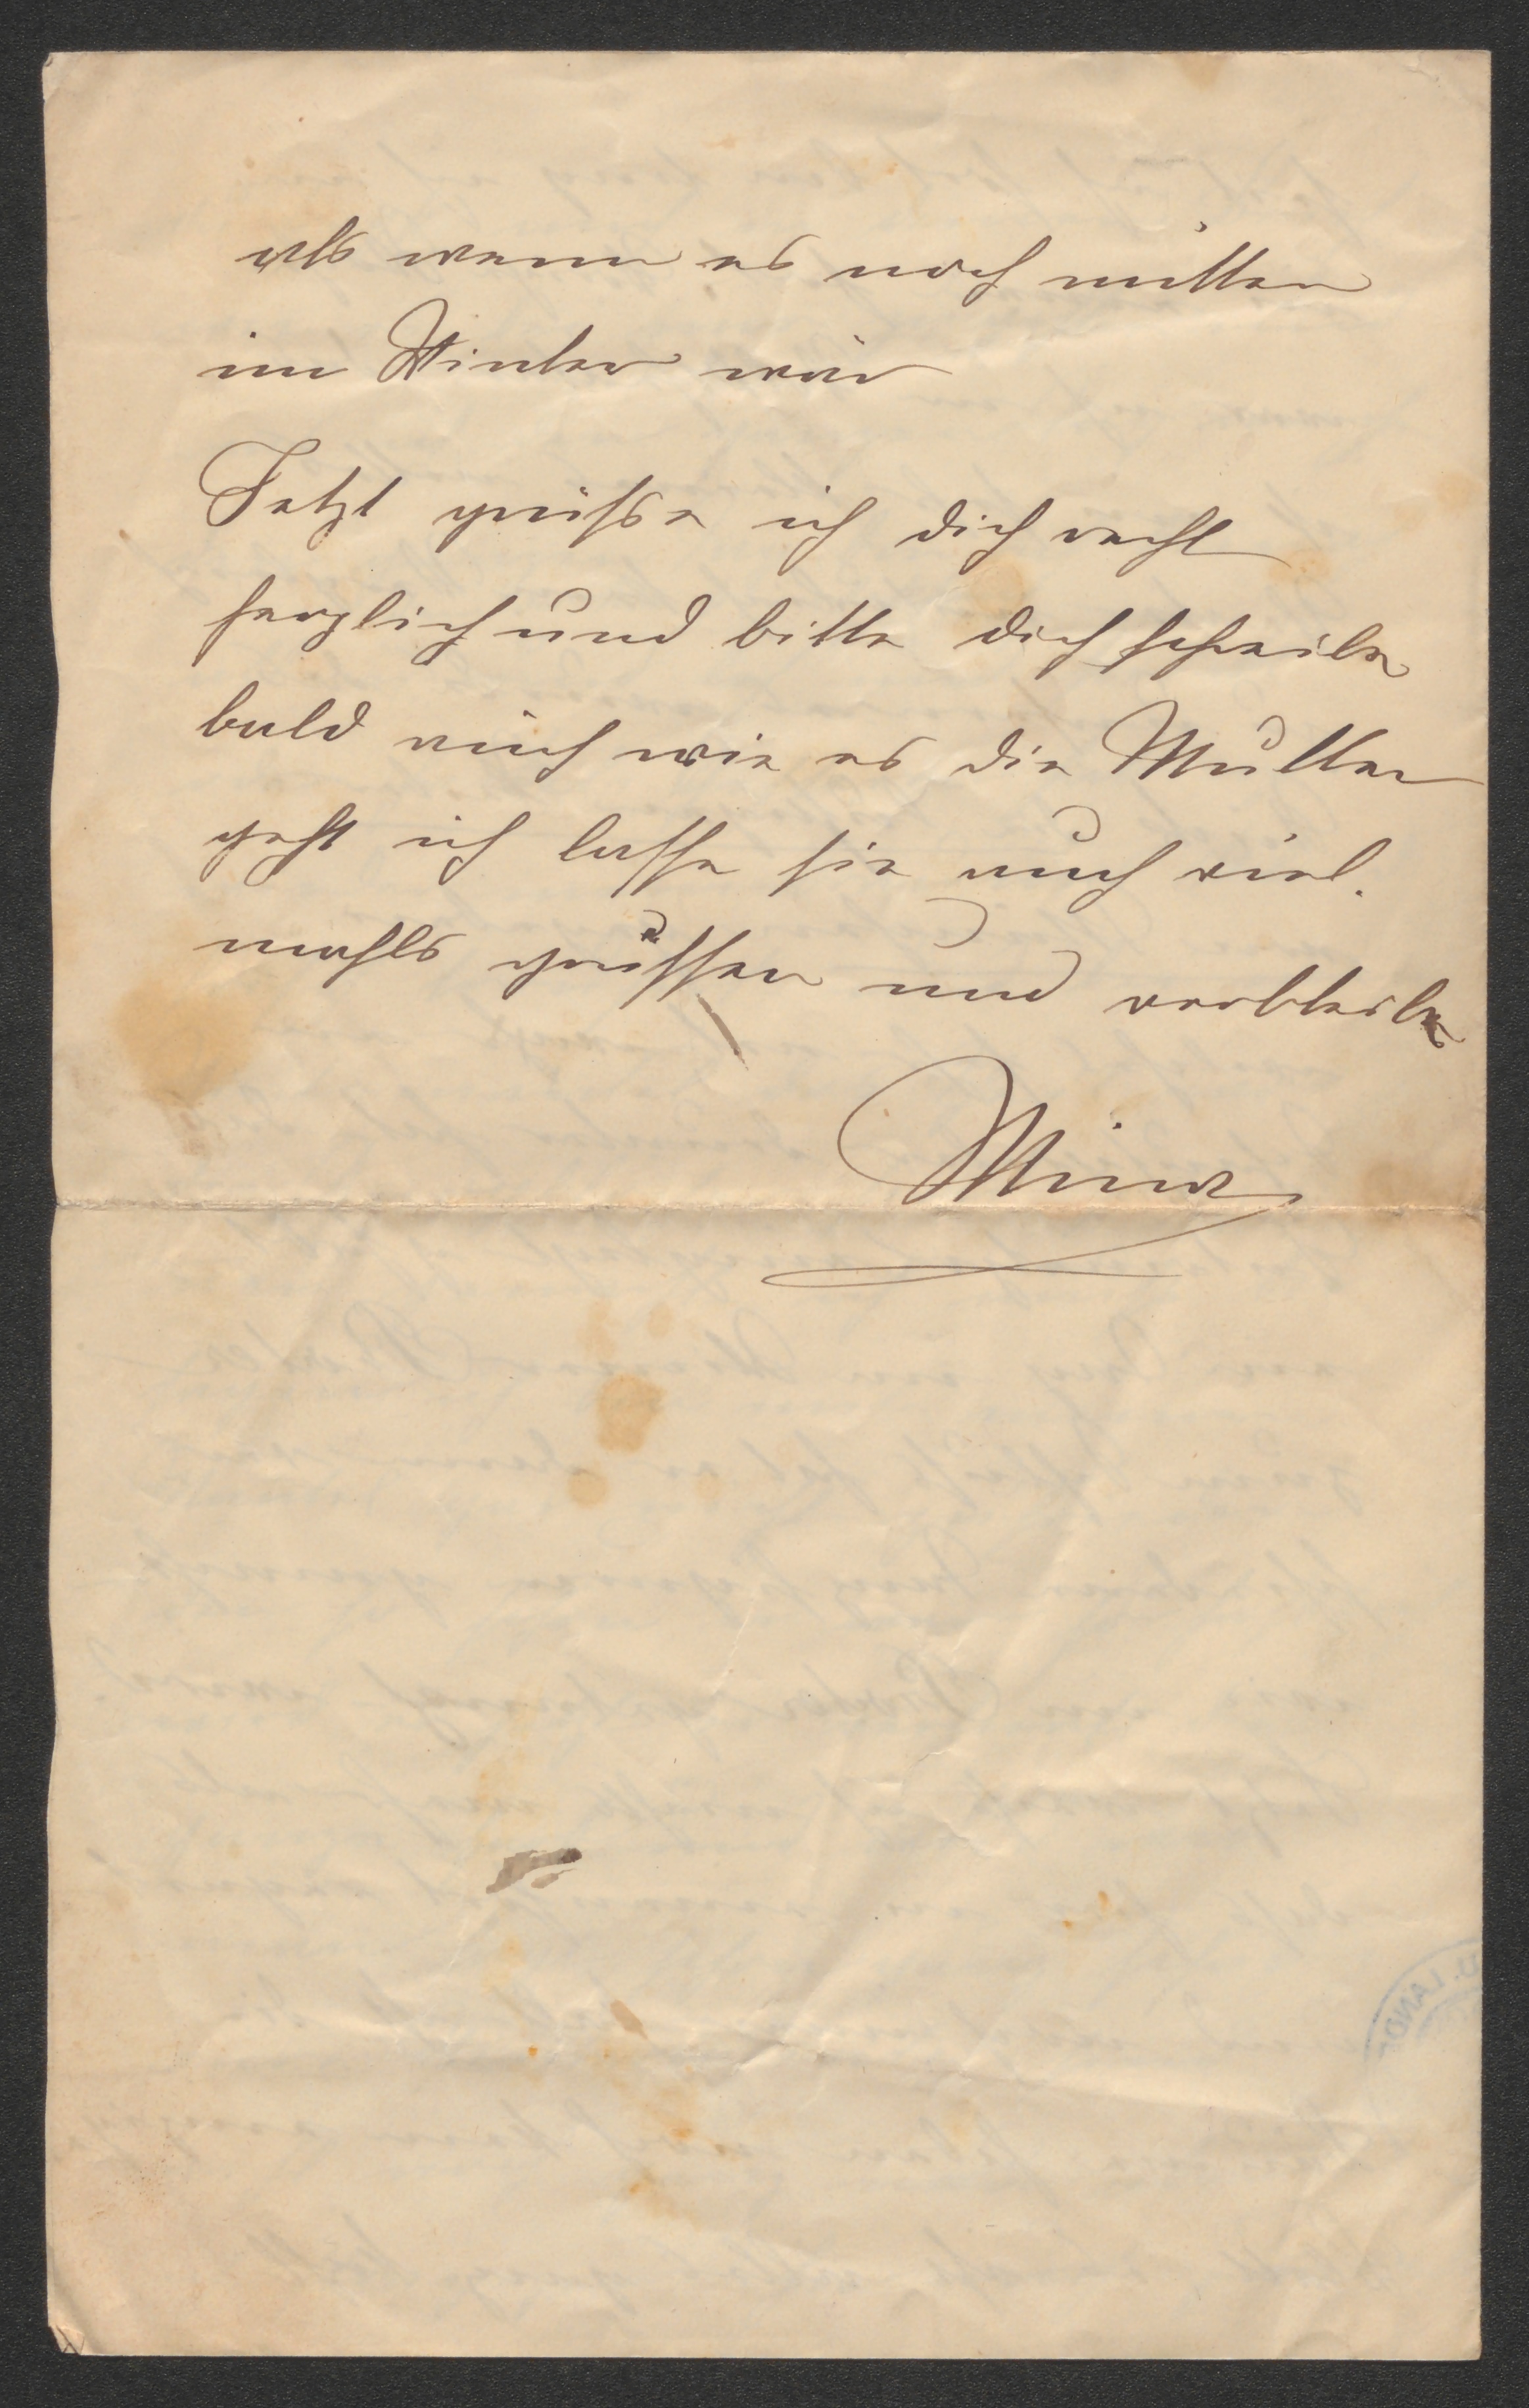 als wenn es noch mitten
im Winter wär
Jetzt grüsse ich dich recht
herzlich und bitte dich schreibe
bald auch wie es die Mutter
geht ich lasse sie auch viel.
mahls grüssen und verbleibe
Mina